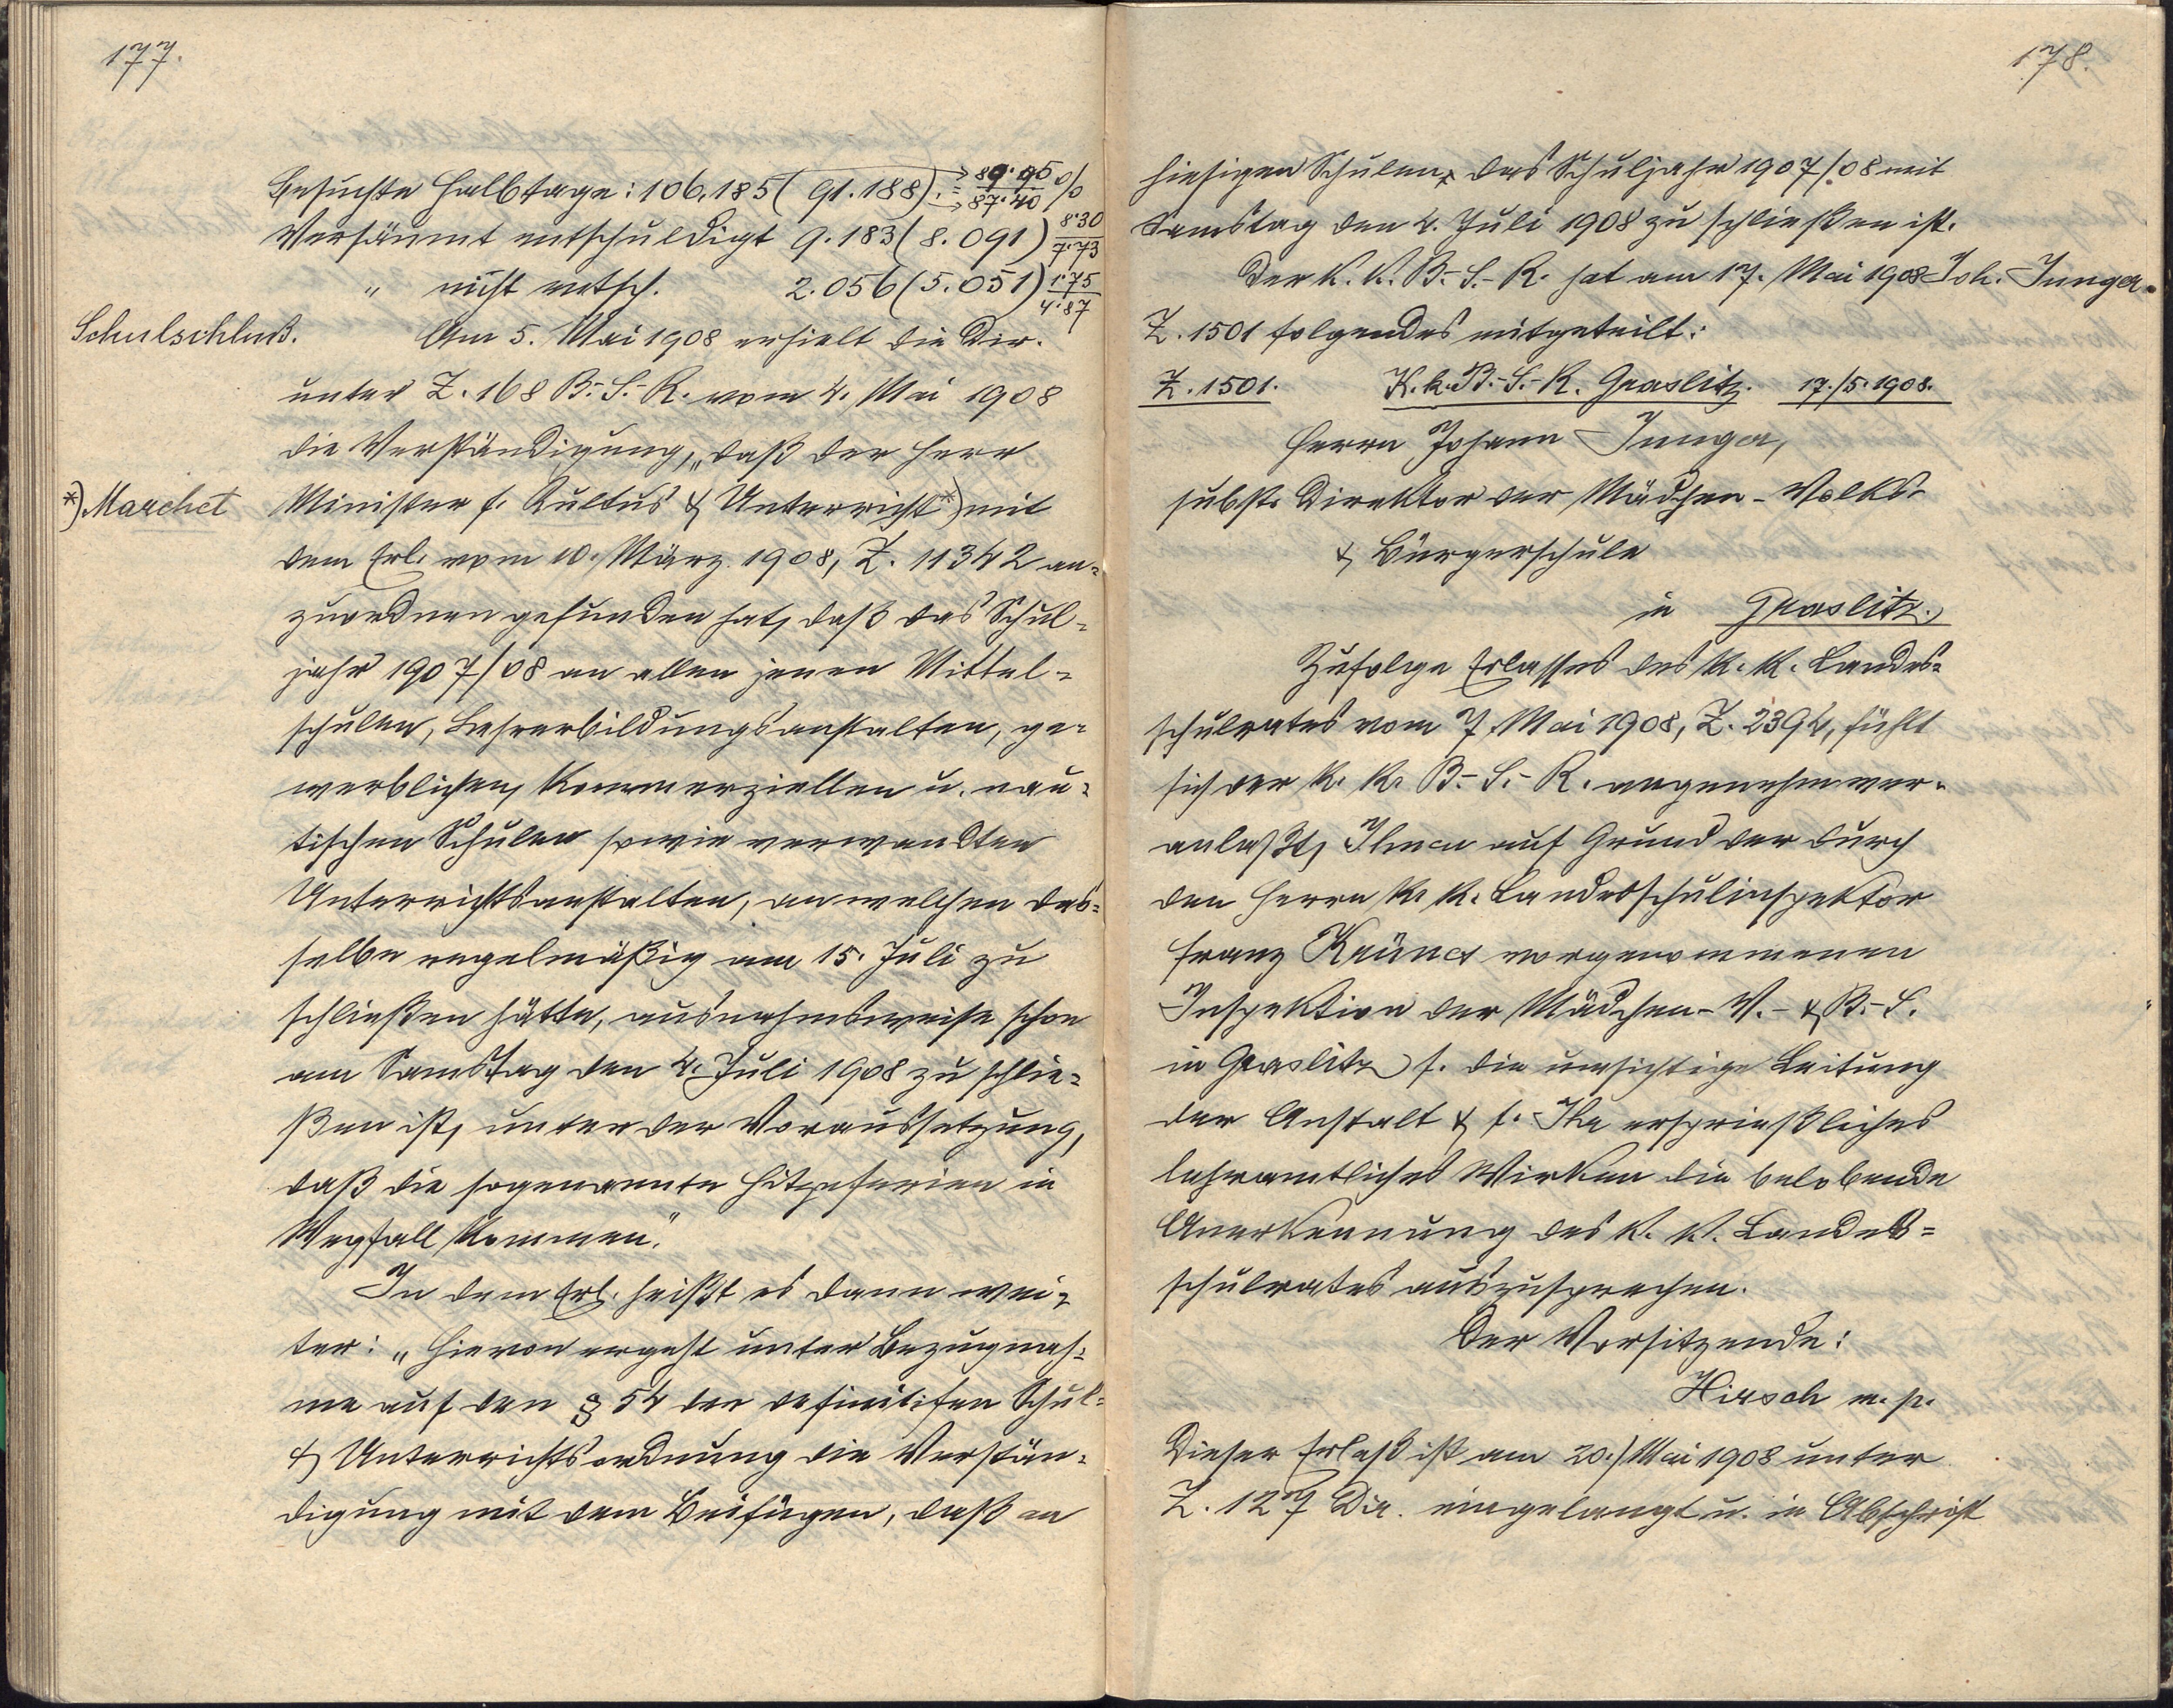 177.
Besuchte Halbtage: 106.185 (91.188) := 89.95 / 87.40 %
Versäumt entschuldigt 9.183 (8.091) 8.30 / 7.73
" nicht entsch. 2.056 (5.051) 1.75 / 4.87
Schulschluß. Am 5. Mai 1908 erhielt die Dir.
unter Z. 168 B.-S.-R. vom 4. Mai 1908
die Verständigung, „daß der Herr
*) Marchet Minister f. Kultus & Unterricht *) mit
dem Erl. vom 10. März 1908, Z. 11342 an-
zuordnen gefunden hat, daß das Schul-
jahr 1907/08 an allen jenen Mittel-
schulen, Lehrerbildungsanstalten, ge-
werblichen, kommerziellen u. nau-
tischen Schulen sowie verwandten
Unterrichtsanstalten, an welchen das-
selbe regelmäßig am 15. Juli zu
schließen hätte, ausnahmsweise schon
am Samstag den 4. Juli 1908 zu schlie-
ßen ist, unter der Voraussetzung,
daß die sogenannten Hitzeferien in
Wegfall kommen."
In dem Erl. heißt es dann wei-
ter: „Hievon ergeht unter Bezugnah-
me auf den § 54 der definitifen Schul-
& Unterrichtsordnung die Verstän-
digung mit dem Beifügen, daß an
178.
hiesigen Schulen das Schuljahr 1907/08 mit
Samstag den 4. Juli 1908 zu schließen ist.
Der k. k. B.-S.-R. hat am 17. Mai 1908 Joh. Junger.
Z. 1501 folgendes mitgeteilt:
Z. 1501. K. k. B.-S.-R. Graslitz. 17./5. 1908.
Herrn Johann Junger,
subst. Direktor der Mädchen-Volks-
& Bürgerschule
in Graslitz.
Zufolge Erlasses des k. k. Landes-
schulrates vom 7. Mai 1908, Z. 2394, fühlt
sich der k. k. B.-S.-R. angenehm ver-
anlaßt, Ihnen auf Grund der durch
den Herrn k. k. Landesschulinspektor
Franz vorgenommenen
Inspektion der Mädchen-V.- & B.-S.
in Graslitz f. die umsichtige Leitung
der Anstalt & f. Ihr ersprießliches
lehramtliches Wirken die belobende
Anerkennung des k. k. Landes-
schulrates auszusprechen.
Der Vorsitzende:
Hirsch m. p.
Dieser Erlaß ist am 20. Mai 1908 unter
Z. 127 Dir. eingelangt u. in Abschrift